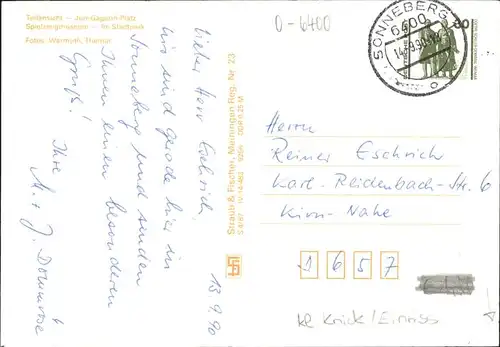 Teilansicht — Juri-Gagarin-Platz
Spielzeugmuseum — Im Stadtpark
Fotos: Warmuth, Themar
Lieber Herr Eschrich,
wir sind gerade hier in
Sonneberg und senden
Ihnen einen besonderen
Gruß!
Ihre
M. + J.
13.9.90
Straub & Fischer, Meiningen Reg. Nr. 23
0-6400
SONNEBERG
6400
80
Herrn
Reiner Eschrich
Karl-Reidenbach-Str. 6
Kirn-Nahe
1657
kl Knick/Einriss